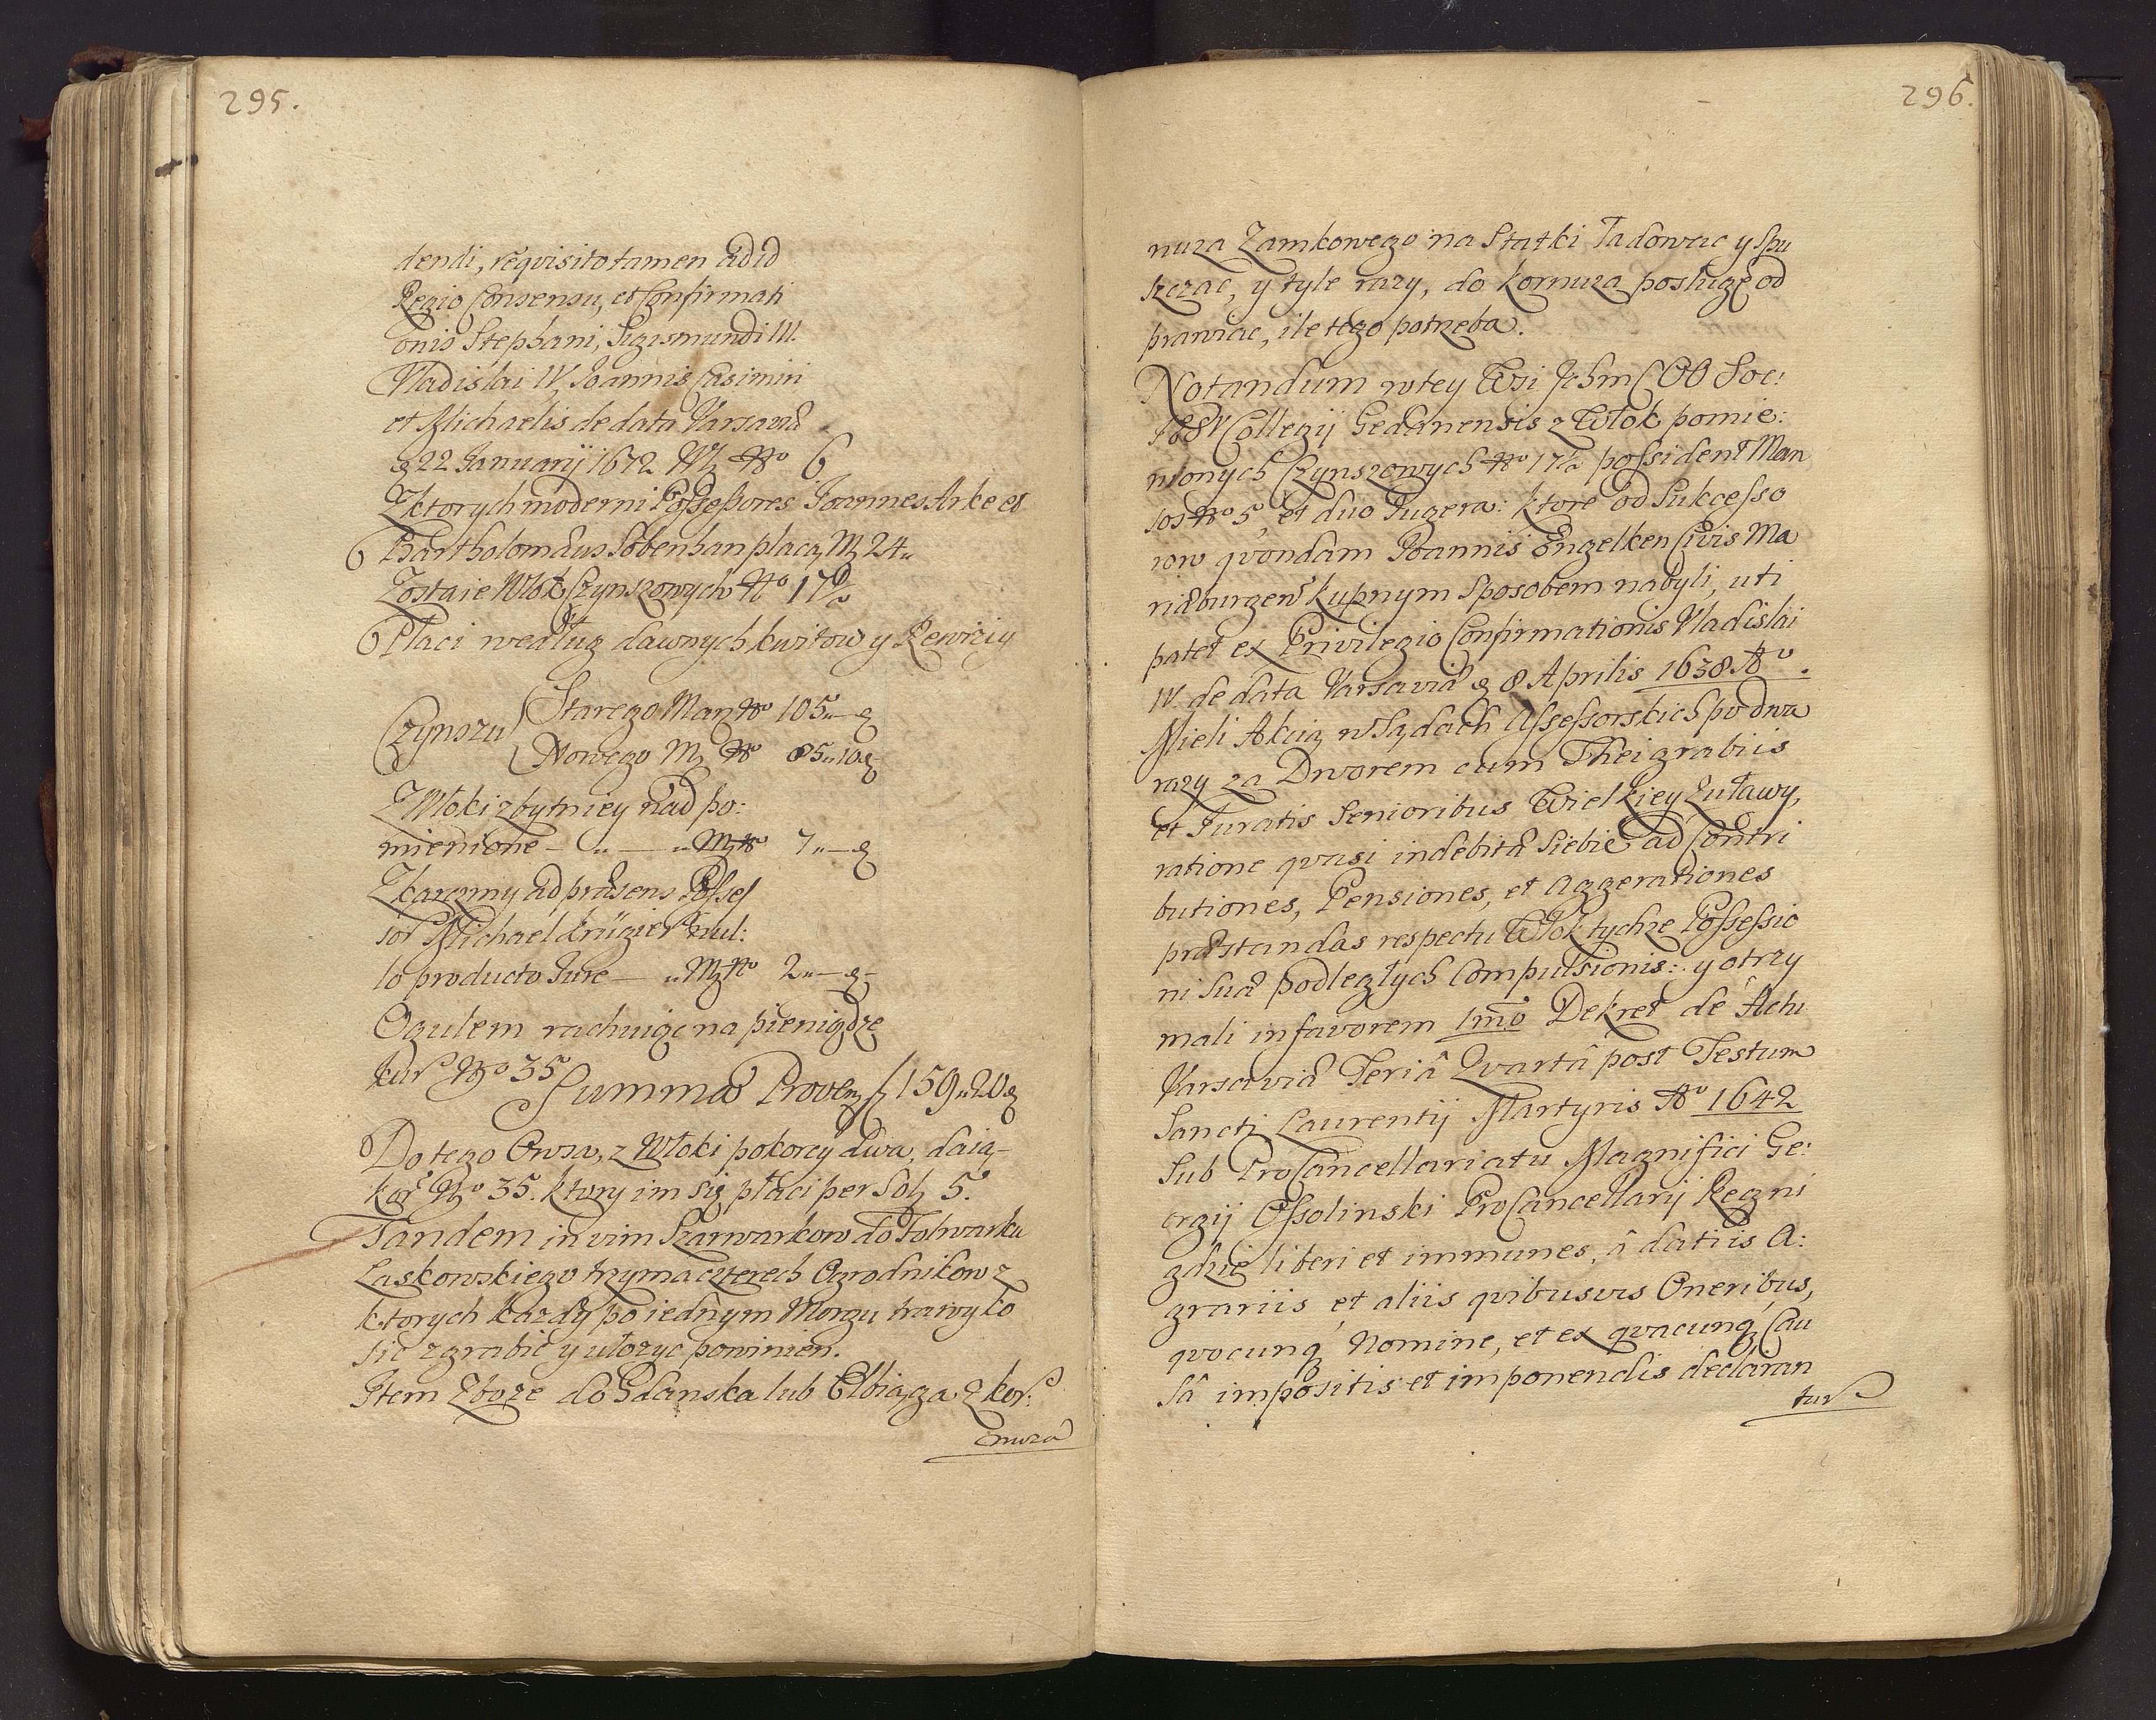 295.
dendi, reqvisito tamen ad id
Regio Consensu, et Confirmati
onis Stephani, Sigismundi III.
Vladislai IV, Joannis Casimiri
et Michaelis de data Varsaviæ
22 Januarij 1672 Wł No 6
Z ktorych moderni Possessores Joannes Arke et
6 Bartholomæus Sobenhan płacą M 24
Zostaie Włok Czynszowych No 17½
Płaci według dawnych kwitow y Rewiziy
Czynszu Starego Man No 105„—g
Nowego M No 85„10g
Z Włoki zbytniey nad po:
mienione — „ — „ M No 7„—g
Z karczmy ad præsens Posses
sor Michael Krügier nul:
lo producto Jure — „ M No 2„—g
Ogulem rachuiąc na pieniądze
kur No 35
Summa Proven f 159„20g
Do tego Owsa, z Włoki po korcy dwa, daią
kor No 35. ktory im się płaci per Sol 5.
Tandem in vim Szarwarkow do Folwarku
Laskowskiego trzyma czterech Ogrodnikow z
ktorych każdy po iednym Morgu trawy ko
sić zgrabić y ułożyc powinien.
Item Zboże do Gdanska lub Elbiąga z kor:
muza
296.
nuza Zamkowego na Statki Ładowac y Spu
szczac, y tyle razy, do kornuza posługę od
prawiac, ile tego potrzeba.
Notandum w tey Wsi Jchm OO Soc:
Collegij Gedanensis z Włok pomie:
nionych Czynszowych No 17½ possident Man
sos No 5, et duo Jugera: ktore od Sukcesso
row qvondam Joannis Engelken Civis Ma
riæburgen kupnym Sposobem nabyli, uti
patet ex Privilegio Confirmationis Vladislai
IV. de data Varsaviæ 8 Aprilis 1638 Ao.
Mieli Akcią w Sądach Assessorskich po dwa
razy za Dworem cum Theigrabiis
et Juratis Senioribus Wielkiey Zuławy,
ratione qvasi indebitæ Siebie ad Contri
butiones, Pensiones, et Aggerationes
præstandas respectu Włok tychże Possessio
ni Suæ podległych Compulsionis: y otrzy
mali in favorem 1mo Dekret de Actu
Varsaviæ Feriâ Qvartâ post Festum
Sancti Laurentij Martyris Ao 1642
Sub ProCancellariatu Magnifici Ge:
orgij Ossolinski ProCancellarij Regni
gdzie liberi et immunes, â datiis A:
grariis et aliis qvibusvis Oneribus,
qvocunq Nomine, et ex qvacunq Cau
sâ impositis et imponendis declaran
tur